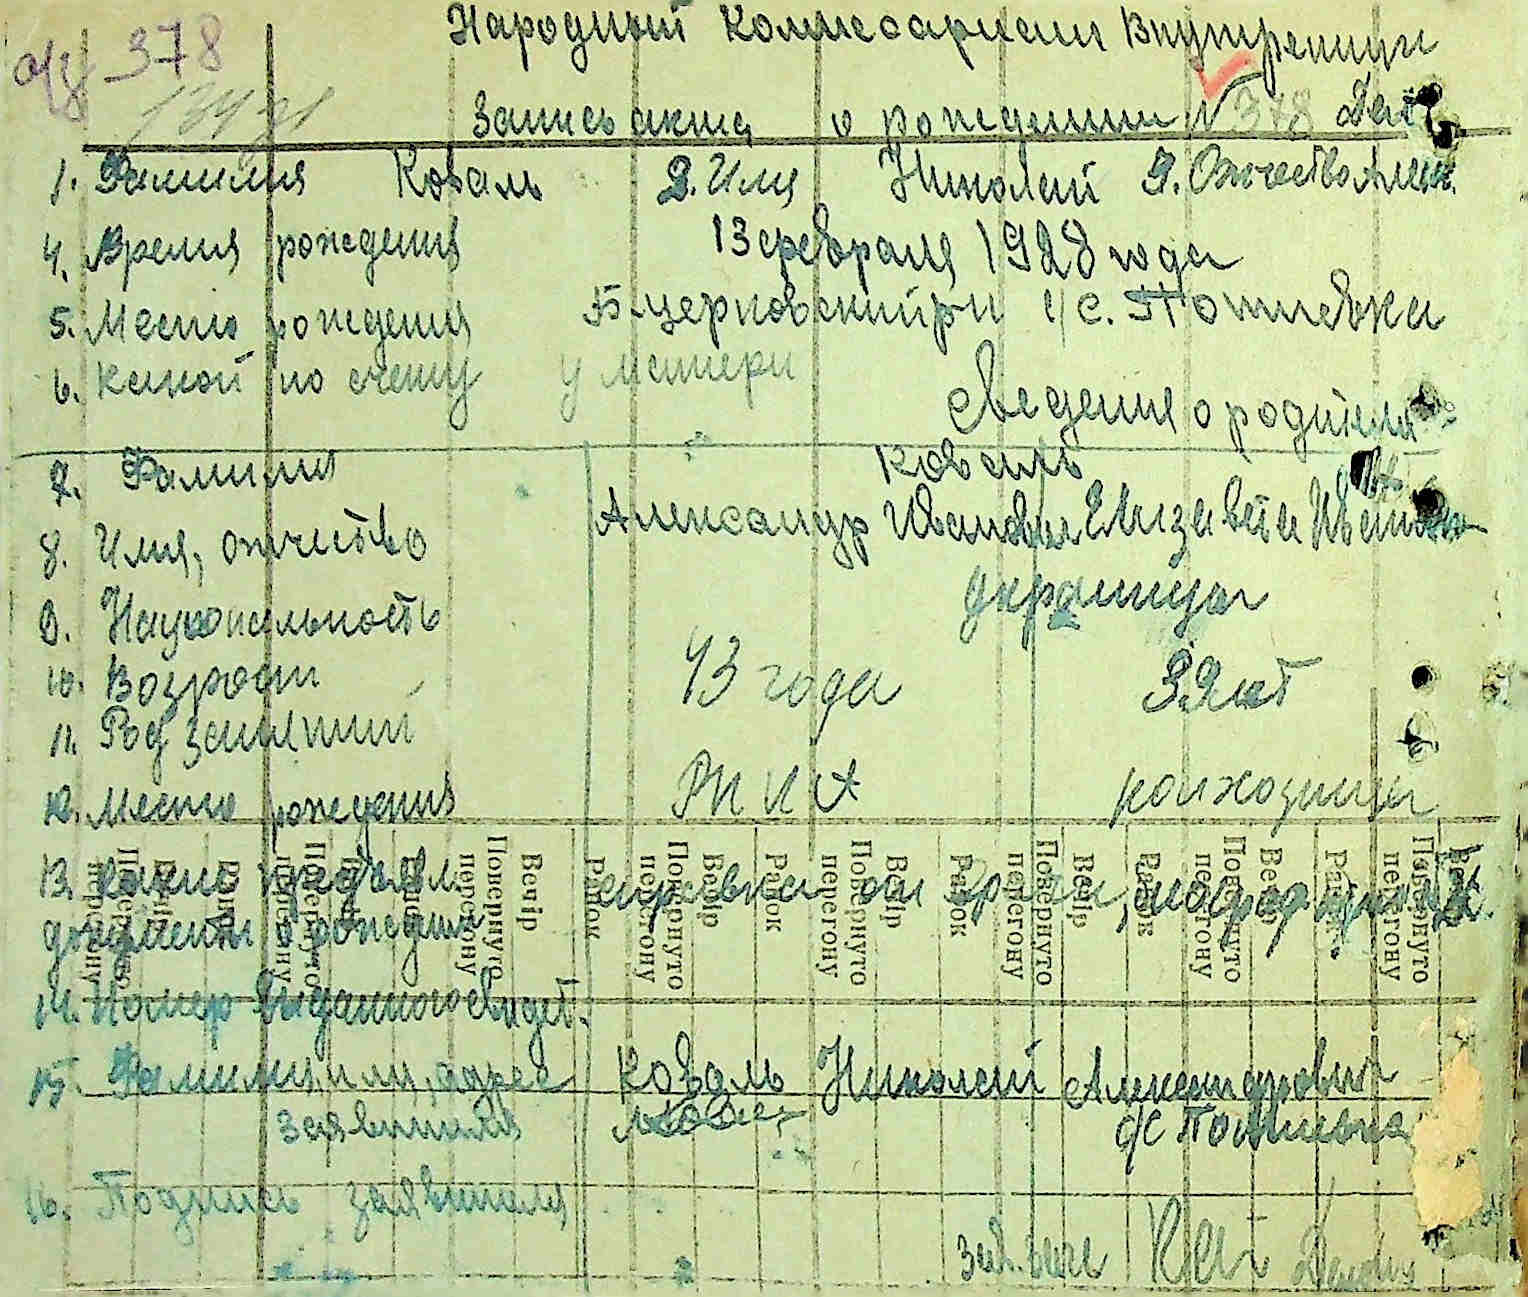 378
Народный Комиссариат Внутренних
Запись акта о рождении № 378 Дел
1. Фамилия Коваль 2. Имя Николай 3. Отчество Алек.
4. Время рождения 13 февраля 1928 года
5. Место рождения Б церковский р-н с. Потиевка
6. какой по счету у матери
Сведения о родителях
7. Фамилия Коваль
8. Имя, отчество Александр Иванович Елизавета Ивановна
9. Национальность украинцы
10. Возраст 43 года 39 лет
11. Род занятий
12. Место рождения РККА колхозница
13. какие предъявл. справка от врач
документы о рождении
14. Номер выданного свидет.
15. Фамилия, имя, адрес Коваль Николай Александрович
заявителя с Потиевка
16. Подпись заявителя
Вечір Повернуто перегону Ранок Повернуто перегону Вечір Ранок Повернуто перегону Вечір Ранок Повернуто перегону Вечір Ранок Повернуто перегону Вечір Повернуто перегону